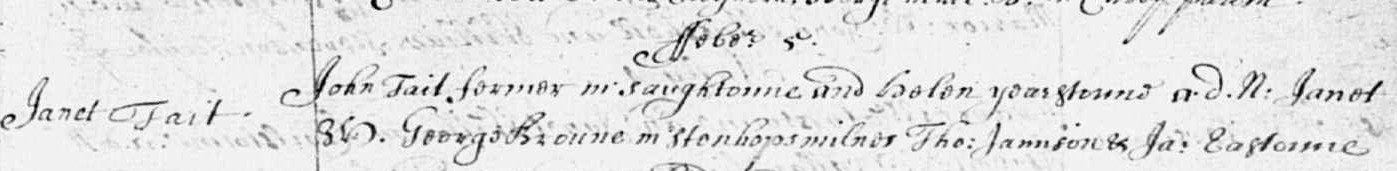 ffebr 5.
Janet Tait. John Tait fermer in Saughtoune and Helen yearstoune a. d. N: Janet
W. George Broune in Stenhopsmilnes Tho: Jamison & Ja: Eastoune